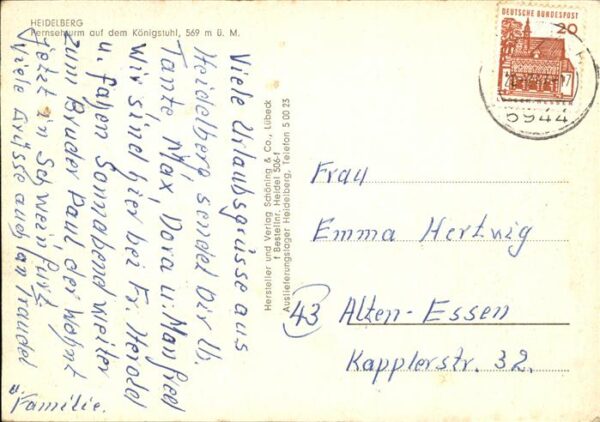 HEIDELBERG
Fernsehturm auf dem Königstuhl, 569 m ü. M.
Viele Urlaubsgrüsse aus
Heidelberg sendet Dir u.
Tante Max, Dora u. Manfred
Wir sind hier bei Fr. Herold
u. fahren Sonnabend weiter
zum Bruder Paul, der wohnt
jetzt in Schweinfurt
Viele Grüsse auch an Traudel
u. Familie.
Hersteller und Verlag Schöning & Co., Lübeck
f Bestellnr. Heidel 506-f
Auslieferungslager Heidelberg, Telefon 5 00 23
DEUTSCHE BUNDESPOST
20
5944
Frau
Emma Hertwig
43 Alten-Essen
Kapplerstr. 32.